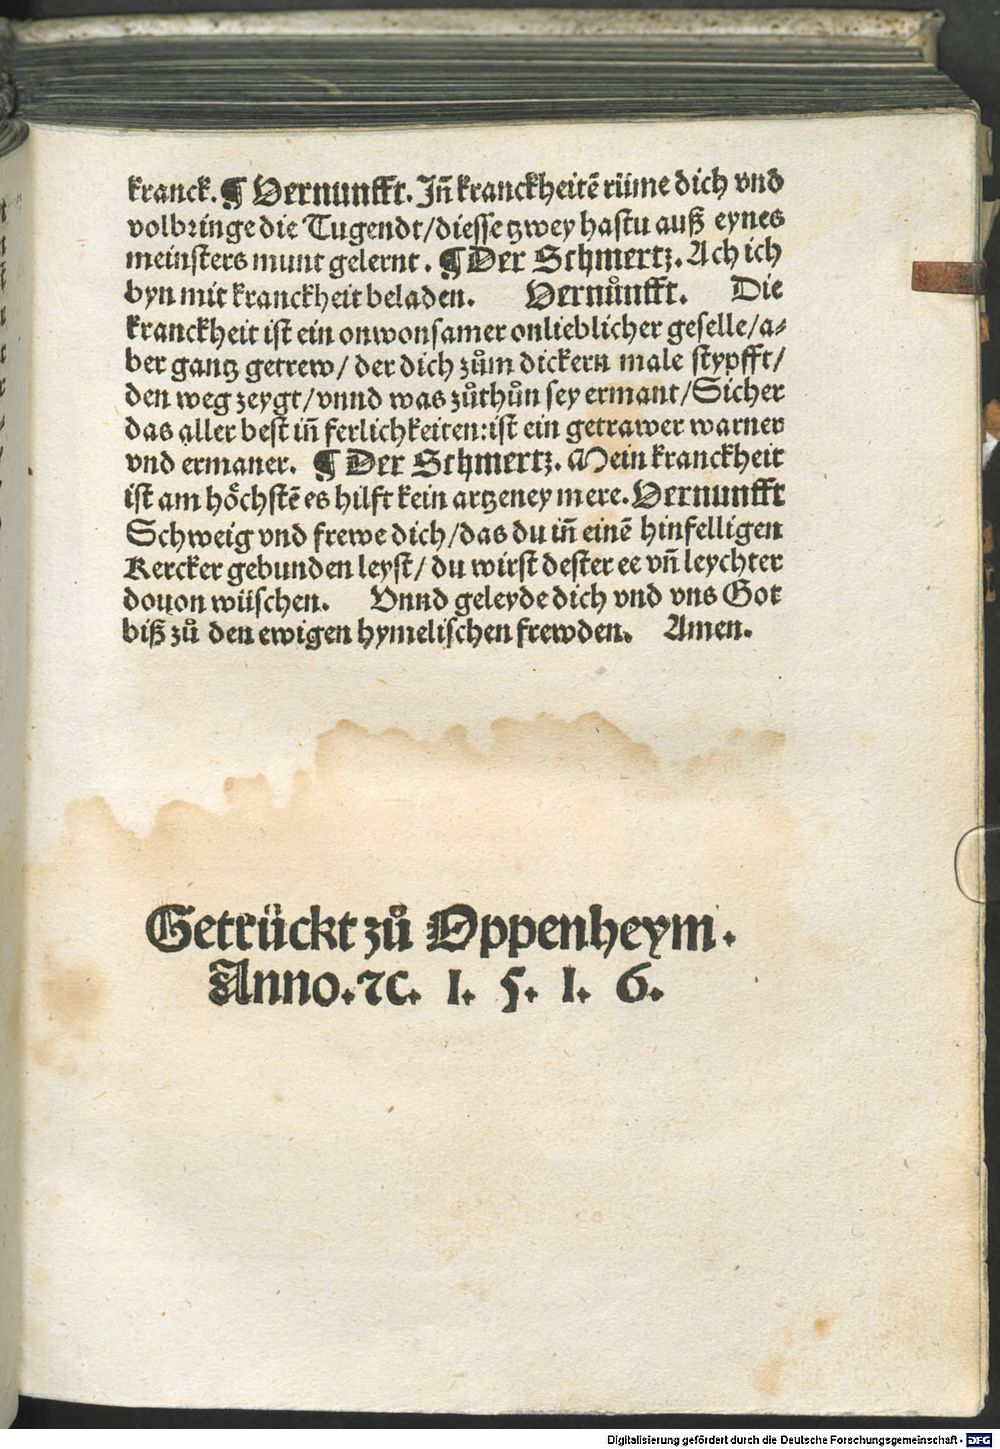 kranck. ¶ Vernunfft. Jn̄ kranckheitē rüme dich vnd
volbꝛinge die Tugendt/diesse tzwey hastu auß eynes
meinsters munt gelernt. ¶ Der Schmertz. Ach ich
byn mit kranckheit beladen. Vernůnfft. Die
kranckheit ist ein onwonsamer onlieblicher geselle/a⸗
ber gantz getrew/ der dich zům dickern male stypfft/
den weg zeygt/vnnd was zůthůn sey ermant/Sicher
das aller best in̄ ferlichkeiten:ist ein getrawer warner
vnd ermaner. ¶ Der Schmertz. Mein kranckheit
ist am hoͤchstē es hilft kein artzeney mere. Vernunfft
Schweig vnd frewe dich/das du in̄ einē hinfelligen
Kercker gebunden leyst/ du wirst dester ee vn̄ leychter
douon wüschen. Vnnd geleyde dich vnd vns Got
biß zů den ewigen hymelischen frewden. Amen.
Getrückt zů Oppenheym.
Anno.⁊c. 1. 5. 1. 6.
Digitalisierung gefördert durch die Deutsche Forschungsgemeinschaft - DFG